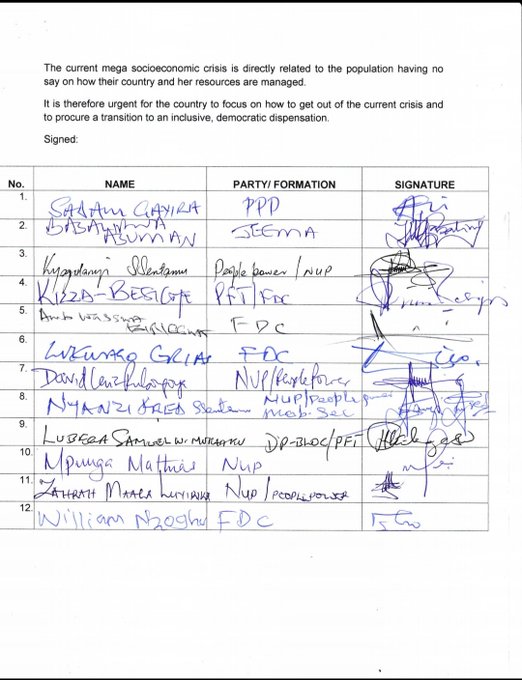 The current mega socioeconomic crisis is directly related to the population having no
say on how their country and her resources are managed.
It is therefore urgent for the country to focus on how to get out of the current crisis and
to procure a transition to an inclusive, democratic dispensation.
Signed:
No. NAME PARTY/ FORMATION SIGNATURE
1. SADAM GAYIRA PPD
2. ASUMAN JEEMA
3. Kyagulanyi Ssentamu People power / NUP
4. KIZZA-BESIGYE PFT/FDC
5. Amb Wasswa BIRIGGWA FDC
6. LUKWAGO FDC
7. David NUP/People Power
8. NYANZI FRED Ssentamu NUP/People power
Mob. Sec
9. LUBEGA SAMUEL W. MUKAAKU DP-BLOC/PFT
10. Mpuuga Mathias NUP
11. ZAHRAH MAALA LUYIRIKA NUP / PEOPLE POWER
12. William Nzoghu FDC